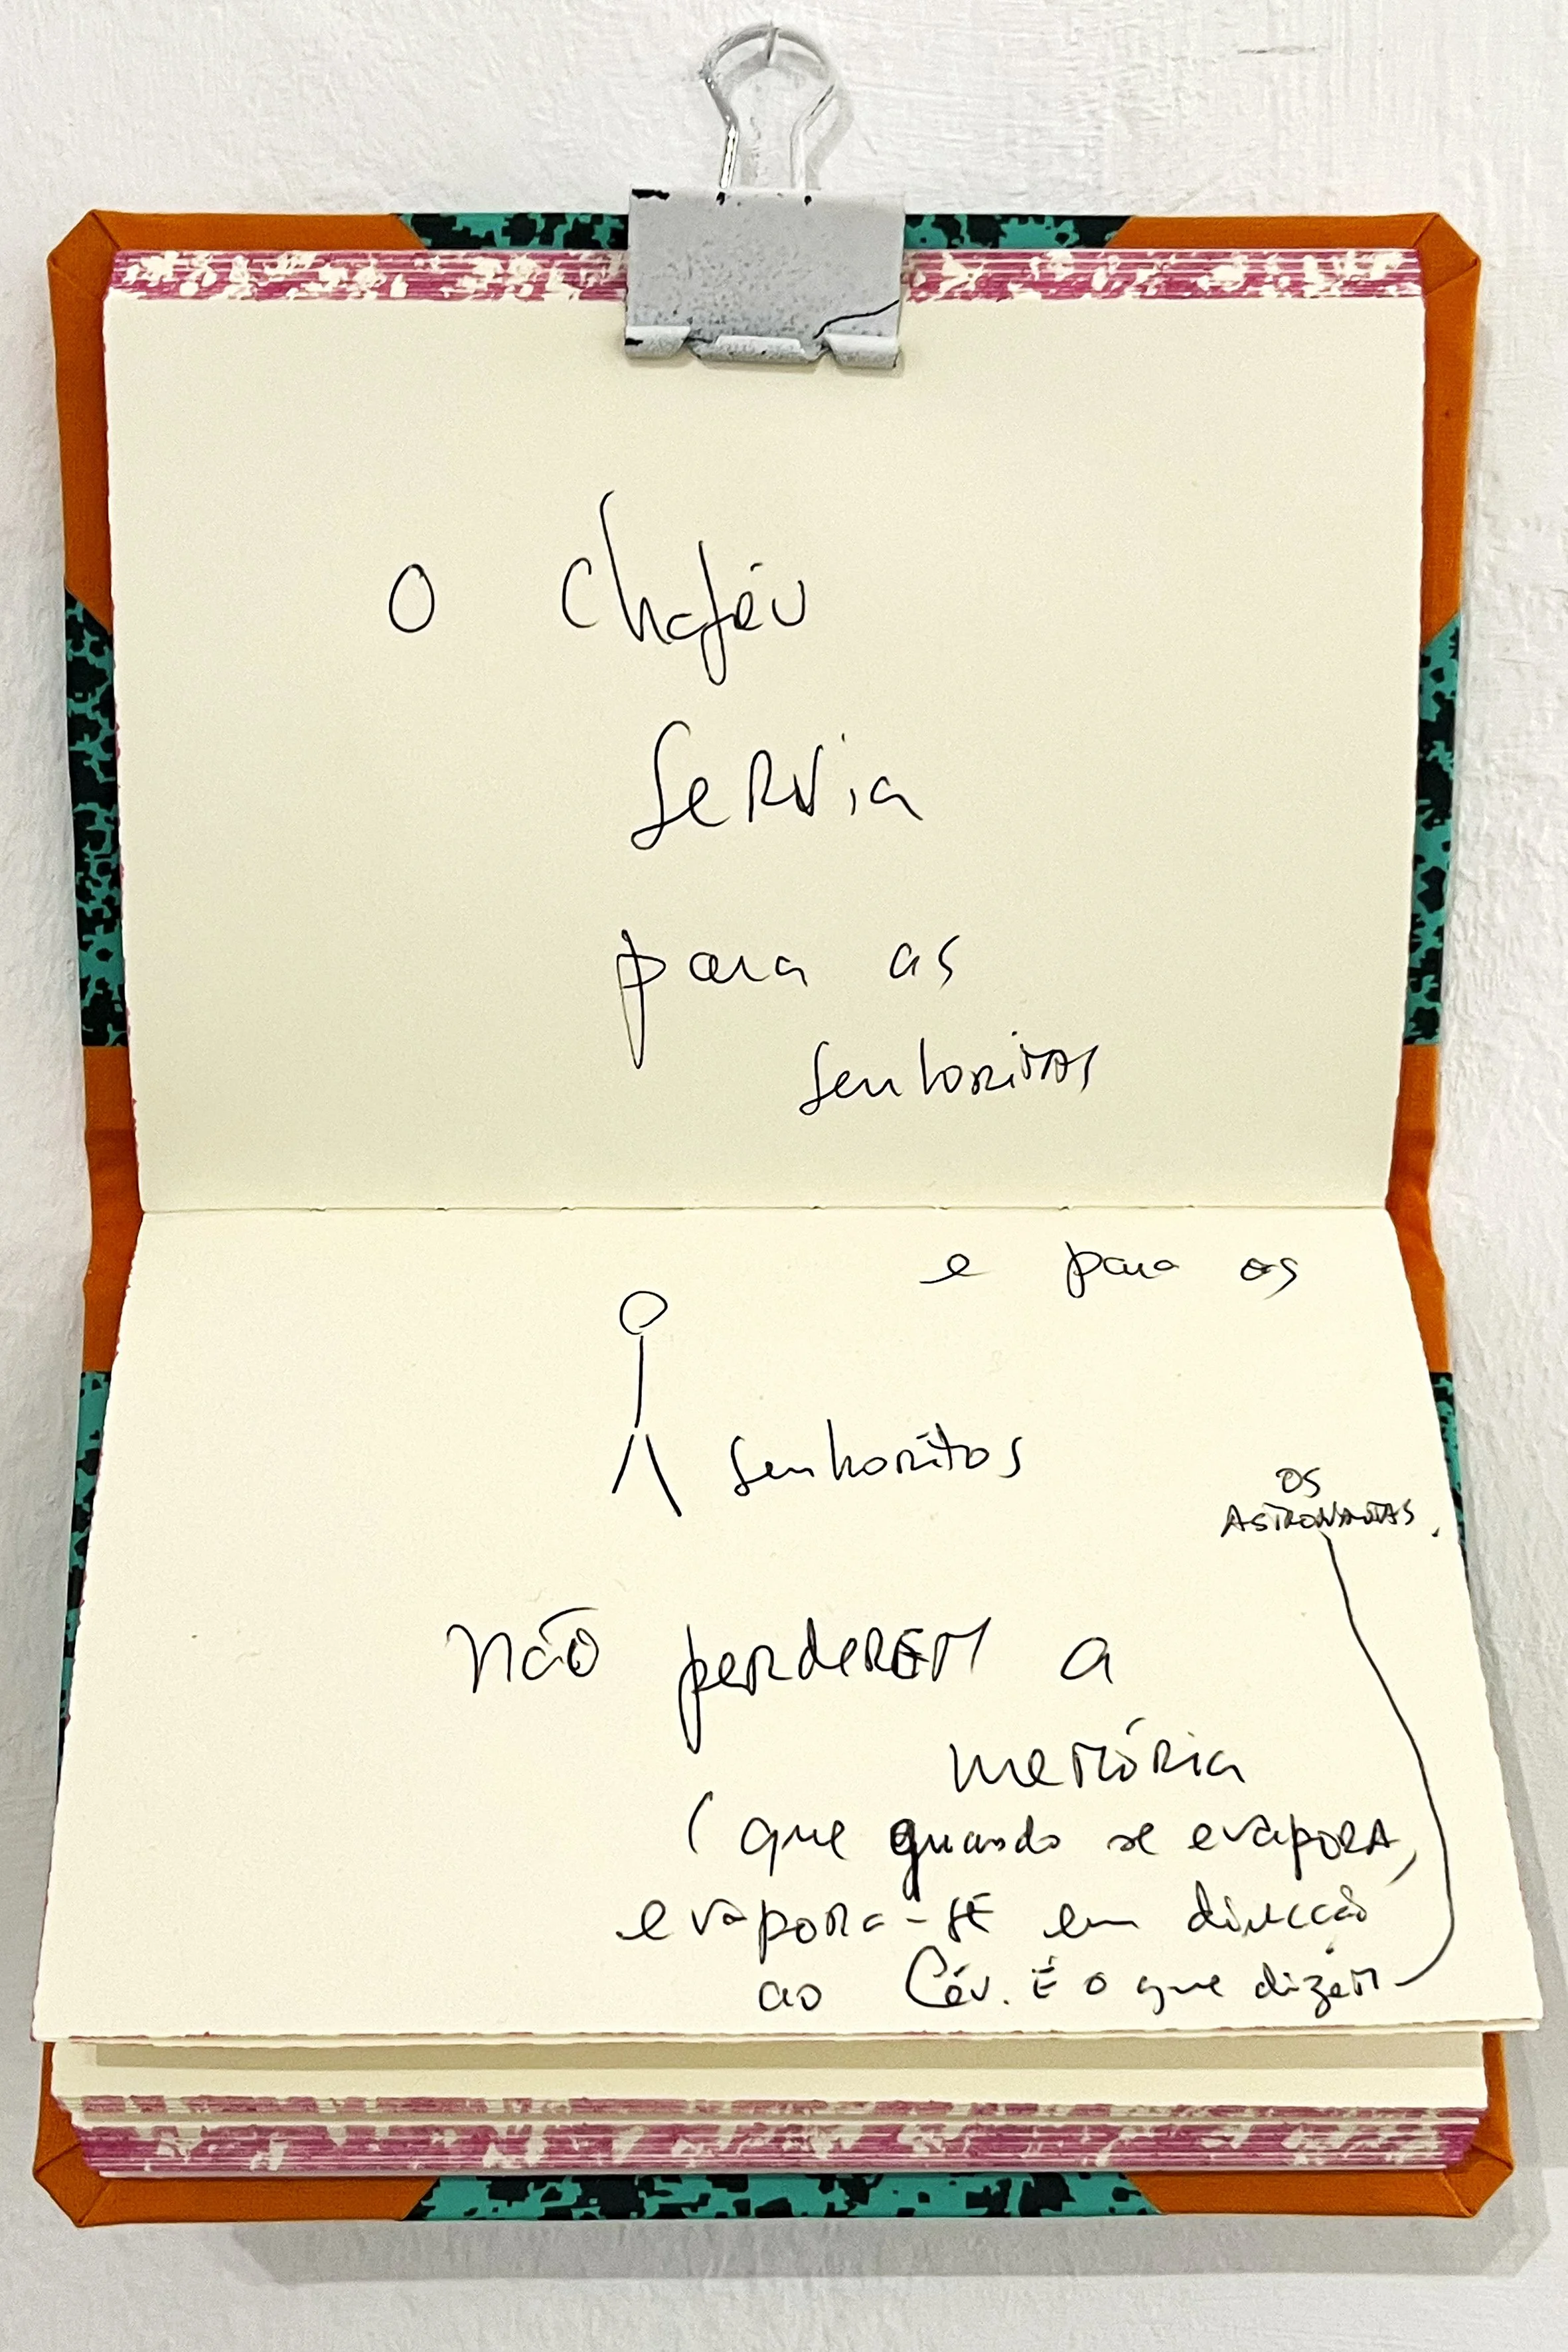 O Chapéu
Servia
para as
senhoritas
e para os
senhoritos
os
ASTRONAUTAS.
Não perderem a
memória
(que quando se evapora,
evapora-se em direcção
ao Céu. É o que dizem